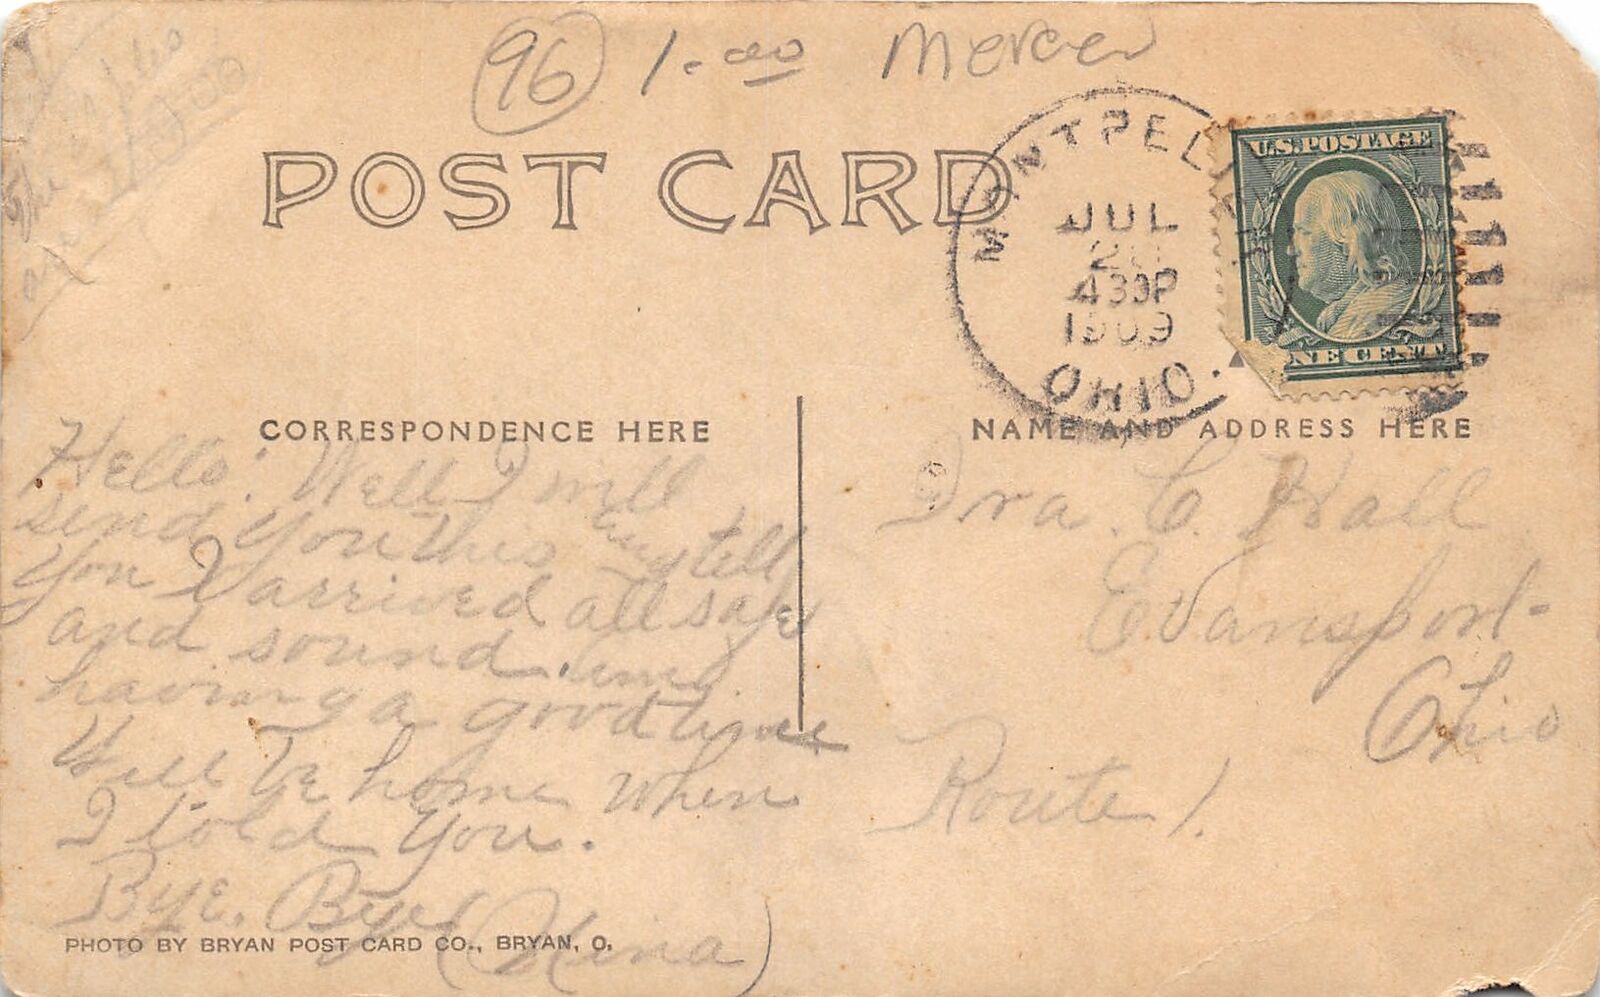 96 1.00 Mercer
POST CARD
MONTPELIER
JUL
4 30P
1909
OHIO.
U.S. POSTAGE
ONE CENT
CORRESPONDENCE HERE
Hello: Well I will
send you this and tell
you I arrived all safe
and sound. am
having a good time
Will be home when
I told you.
Bye. Bye
(Nina)
NAME AND ADDRESS HERE
Ira. C. Hall
Evansport-
Ohio
Route 1.
PHOTO BY BRYAN POST CARD CO., BRYAN, O.